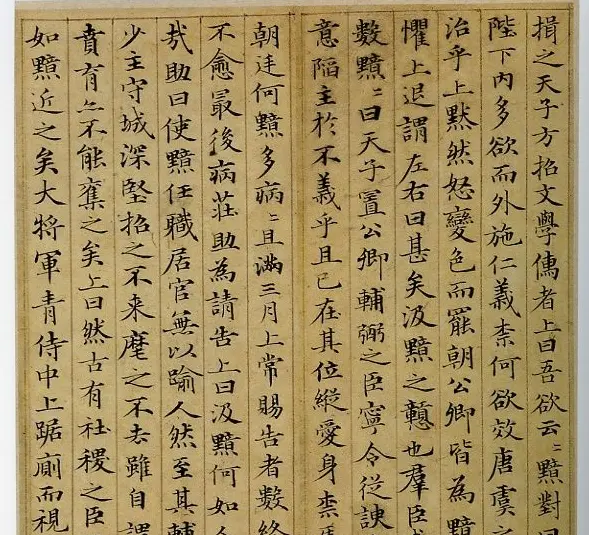 損之天子方招文學儒者上曰吾欲云〻黯對曰
陛下內多欲而外施仁義柰何欲效唐虞之
治乎上默然怒變色而罷朝公卿皆為黯
懼上退謂左右曰甚矣汲黯之戇也羣臣
數黯〻曰天子置公卿輔弼之臣寧令從諛
意陷主於不義乎且已在其位縱愛身柰
朝廷何黯多病〻且滿三月上常賜告者數終
不愈最後病莊助為請告上曰汲黯何如人
㢤助曰使黯任職居官無以踰人然至其輔
少主守城深堅招之不来麾之不去雖自謂
賁育亦不能奪之矣上曰然古有社稷之臣
如黯近之矣大將軍青侍中上踞廁而視